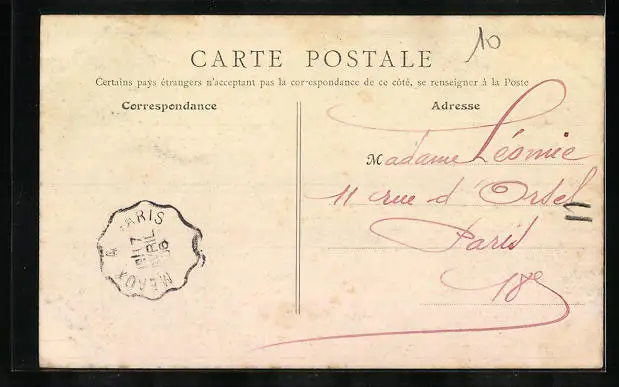 10
CARTE POSTALE
Certains pays étrangers n'acceptant pas la correspondance de ce côté, se renseigner à la Poste
Correspondance
Adresse
Madame Léonie
11 rue d'Orsel
Paris
18e
MEAUX A PARIS
17
AVRIL